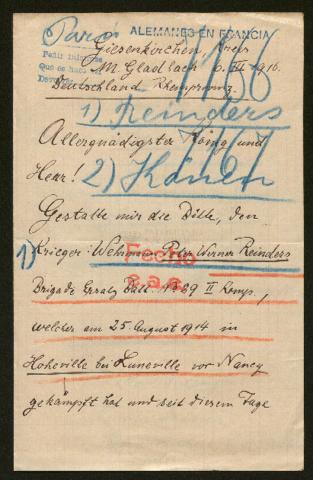 Paris ALEMANES EN FRANCIA
Giesenkirchen, Kreis
M. Gladbach 6. III. 1916.
Deutschland Rheinprovinz.
Pedir informes
Que es hacen
1) Reinders
Allergnädigster König und
Herr! 2) Könen
Gestatte mir die Bitte, den
1) Krieger: Wehrmann Peter Werner Reinders
Fecho
Brigade Ersatz Batl. No 29 II Komp.,
welcher am 25. August 1914 in
Hoheville bei Luneville vor Nancy
gekämpft hat und seit diesem Tage